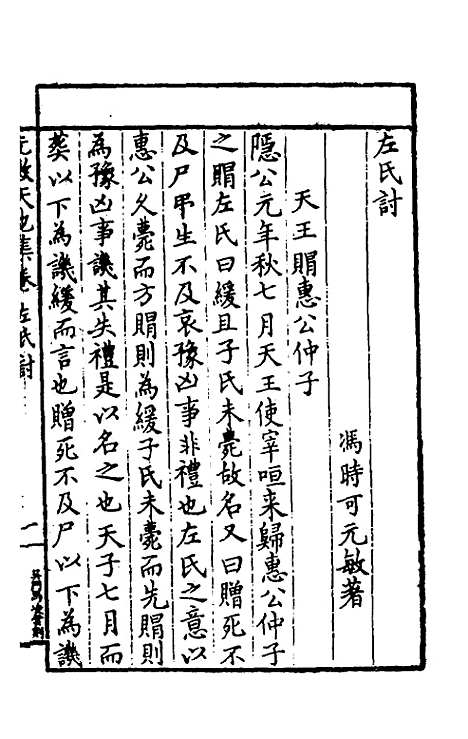 左氏討
馮時可元敏著
天王賵惠公仲子
隱公元年秋七月天王使宰咺来歸惠公仲子
之賵左氏曰緩且子氏未薨故名又曰贈死不
及尸弔生不及哀豫凶事非禮也左氏之意以
惠公久薨而方賵則為緩子氏未薨而先賵則
為豫凶事譏其失禮是以名之也天子七月而
葬以下為譏緩而言也贈死不及尸以下為譏
元敏天池集卷 左氏討
一